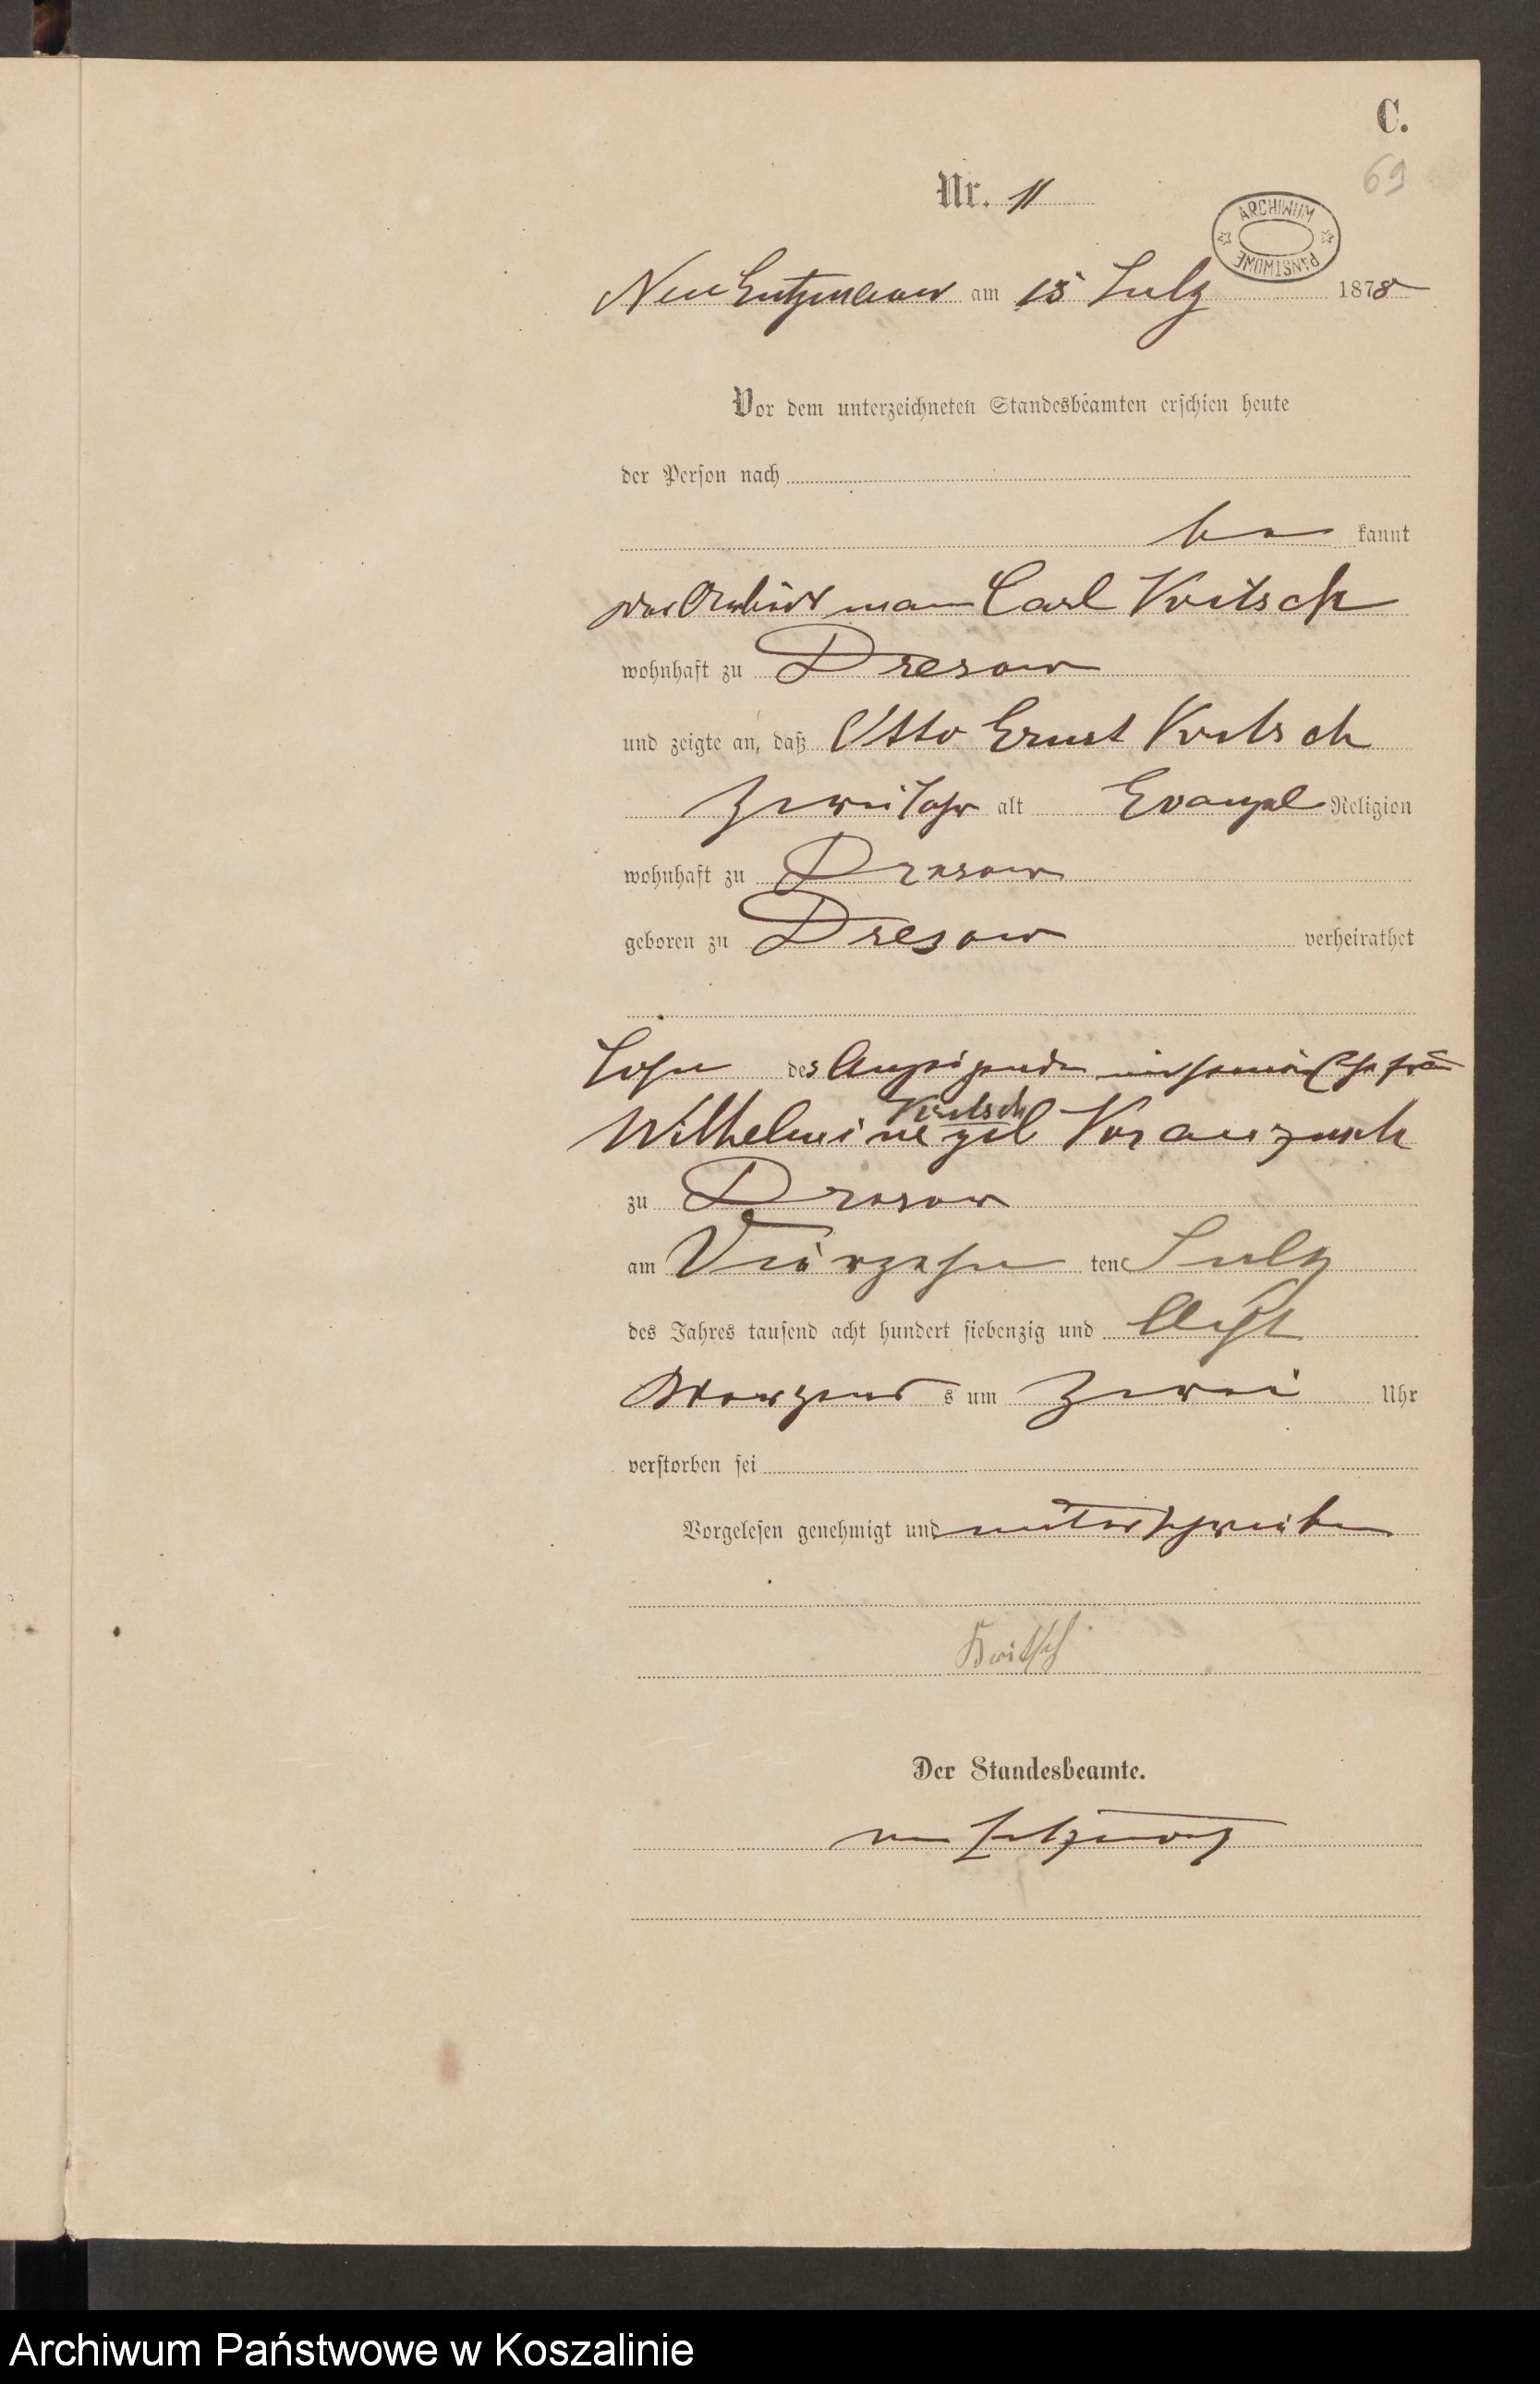 C.
69
Nr. 11
ARCHIWUM PAŃSTWOWE
am 15 July 1878
Vor dem unterzeichneten Standesbeamten erschien heute
der Person nach
be kannt
der Arbeitsmann Carl Kritsch
wohnhaft zu Dresow
und zeigte an, daß Otto Ernst Kritsch
Zwei Jahr alt Evangel Religion
wohnhaft zu Dresow
geboren zu Dresow verheirathet
Sohn des Anzeigenden und seiner Ehefrau
Kritsch
Wilhelmine geb
zu Dresow
am Vierzehn ten July
des Jahres tausend acht hundert siebenzig und Acht
Morgens s um Zwei Uhr
verstorben sei
Vorgelesen genehmigt und unterschrieben
Kritsch
Der Standesbeamte.
Archiwum Państwowe w Koszalinie